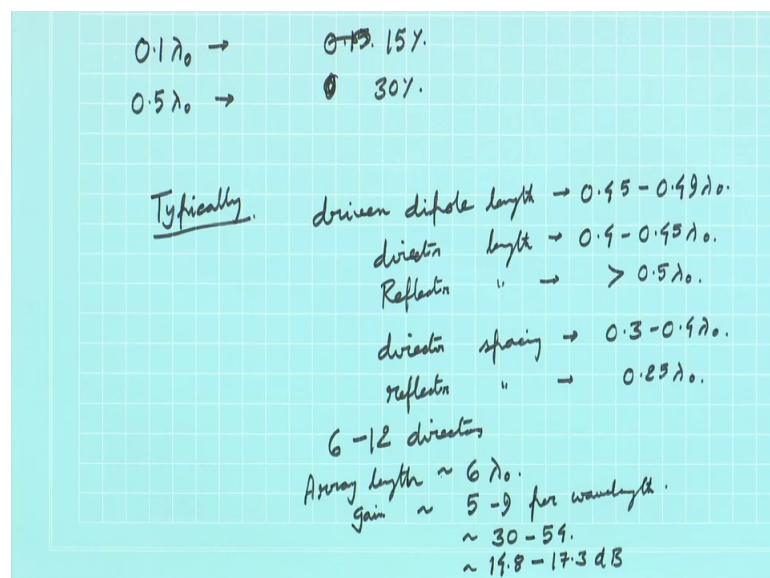 0.1 λ₀ → 15%.
0.5 λ₀ → 30%.
Typically. driven dipole length → 0.45 - 0.49 λ₀.
director length → 0.4 - 0.45 λ₀.
Reflector " → > 0.5 λ₀.
director spacing → 0.3 - 0.4 λ₀.
reflector " → 0.25 λ₀.
6 - 12 directors
Array length ~ 6 λ₀.
gain ~ 5 - 9 per wavelength.
~ 30 - 54.
~ 14.8 - 17.3 dB